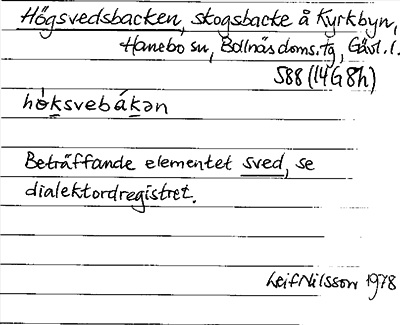 Högsvedsbacken, skogsbacke å Kyrkbyn,
Hanebo sn, Bollnäs doms.tg, Gävl. l.
S88 (14G 8h)
hóksvebákən
Beträffande elementet sved, se
dialektordregistret.
Leif Nilsson 1978